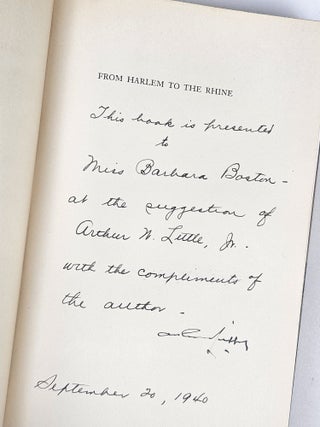 FROM HARLEM TO THE RHINE
This book is presented
to
Miss Barbara Boston –
at the suggestion of
Arthur W. Little, Jr.
with the compliments of
the author –
September 20, 1940